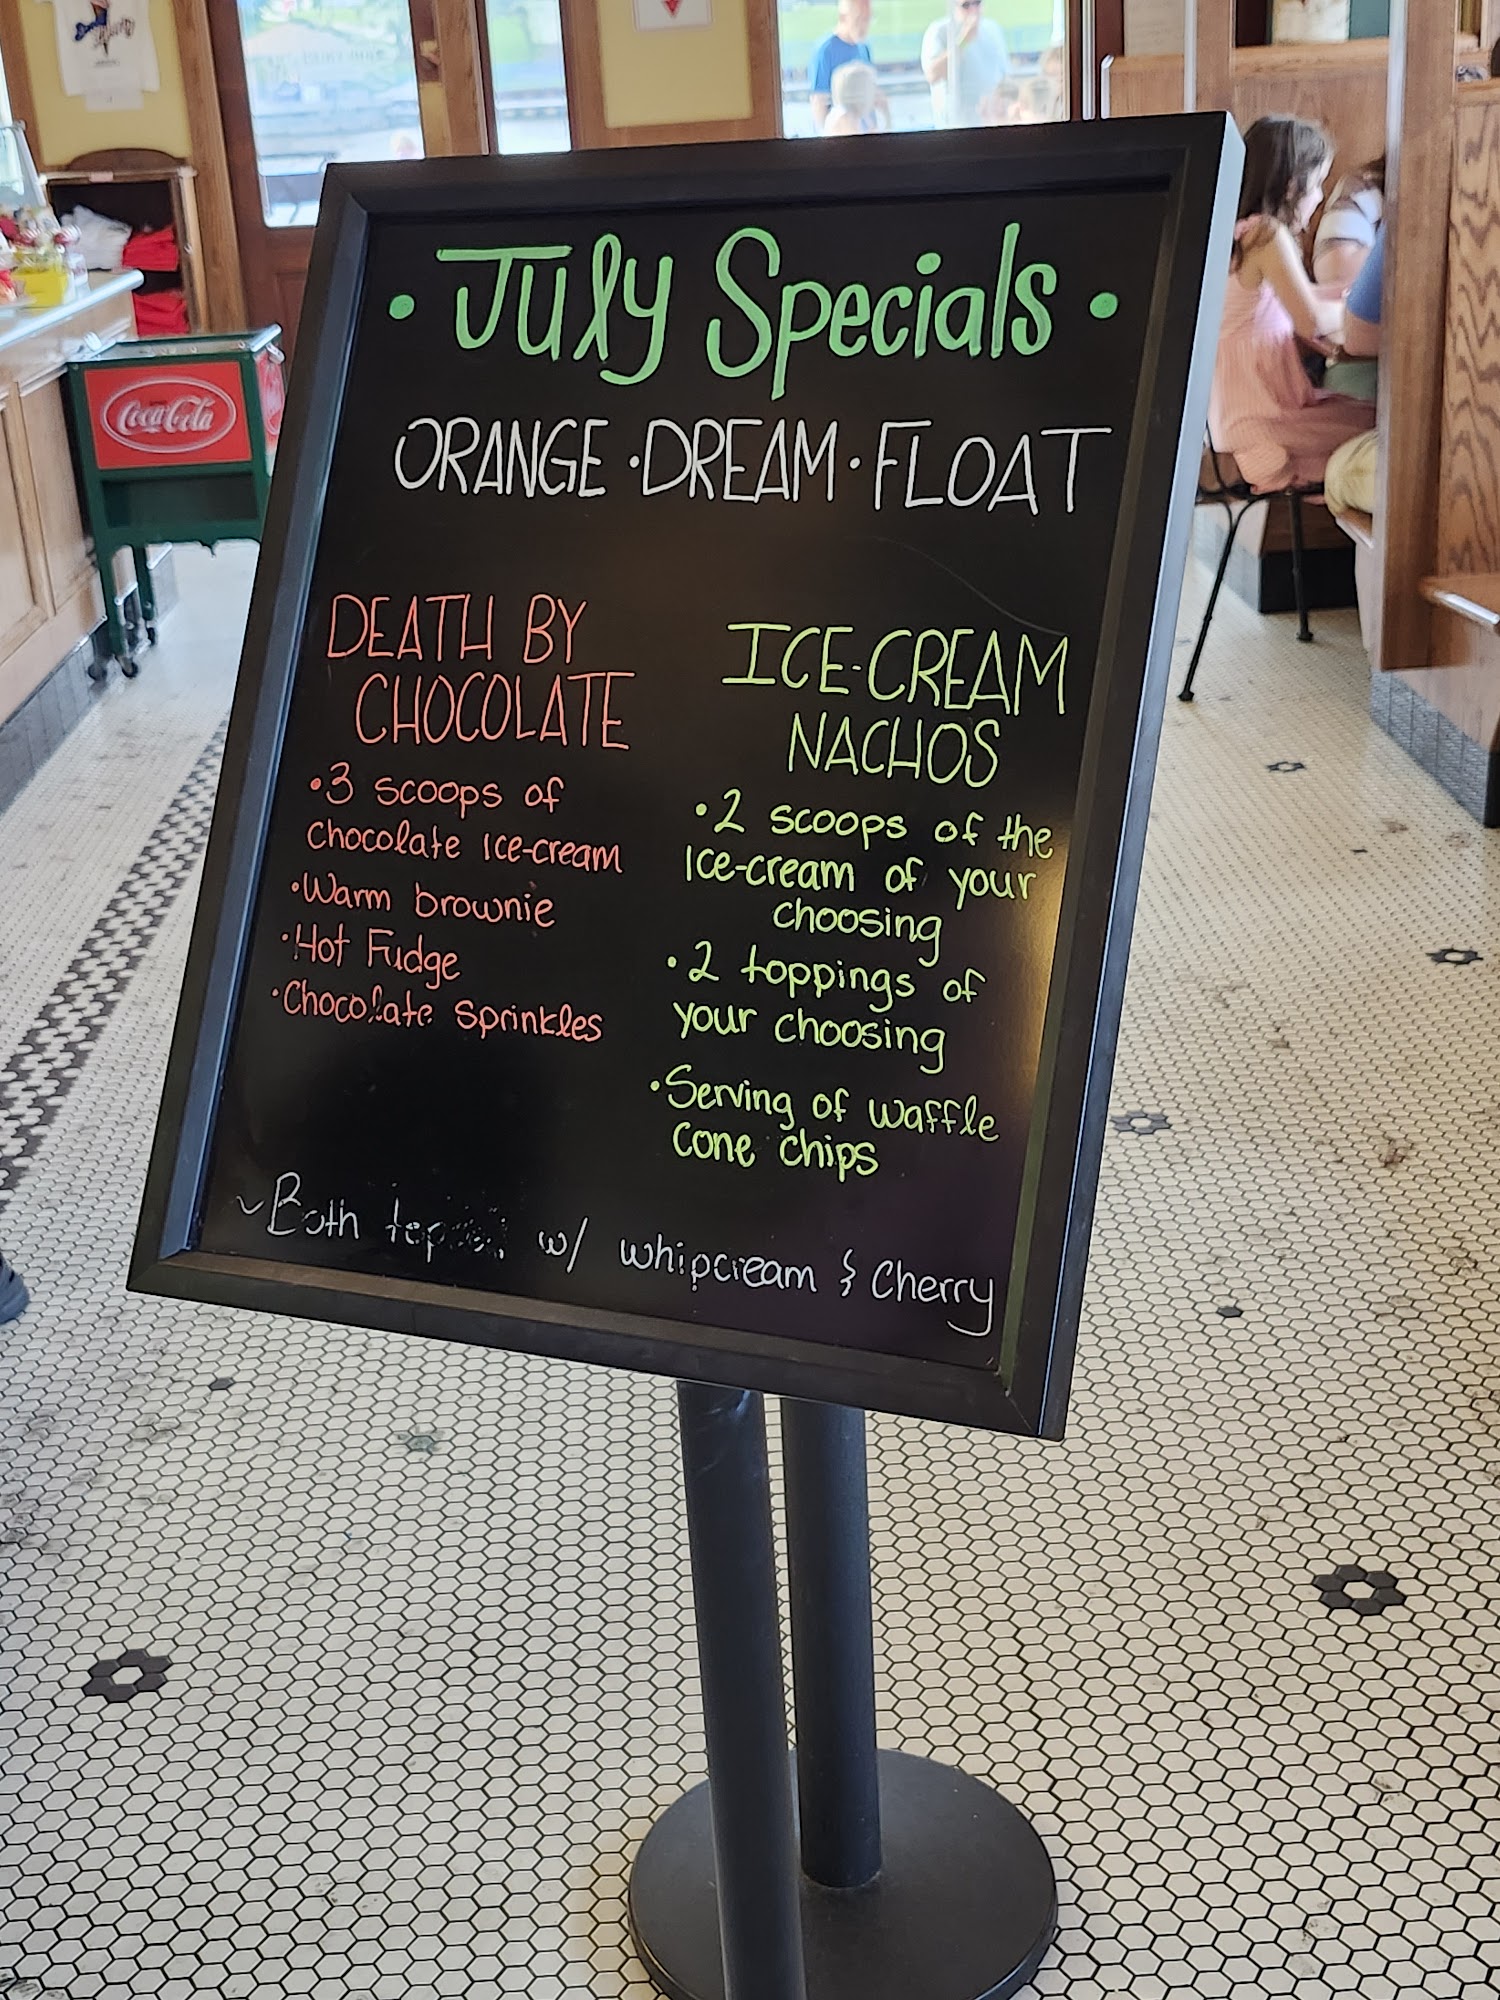 • July Specials •
ORANGE • DREAM • FLOAT
DEATH BY
CHOCOLATE
• 3 scoops of
chocolate Ice-cream
• Warm brownie
• Hot Fudge
• Chocolate Sprinkles
ICE-CREAM
NACHOS
• 2 scoops of the
Ice-cream of your
choosing
• 2 toppings of
your choosing
• Serving of waffle
cone chips
~Both w/ whipcream & Cherry
Coca-Cola